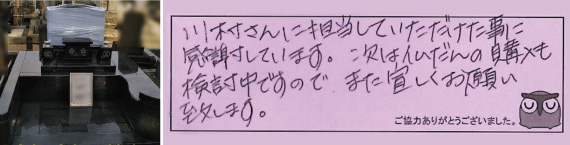 川村さんに担当していただけた事に
感謝しています。次は仏だんの購入も
検討中ですので、また宜しくお願い
致します。
ご協力ありがとうございました。